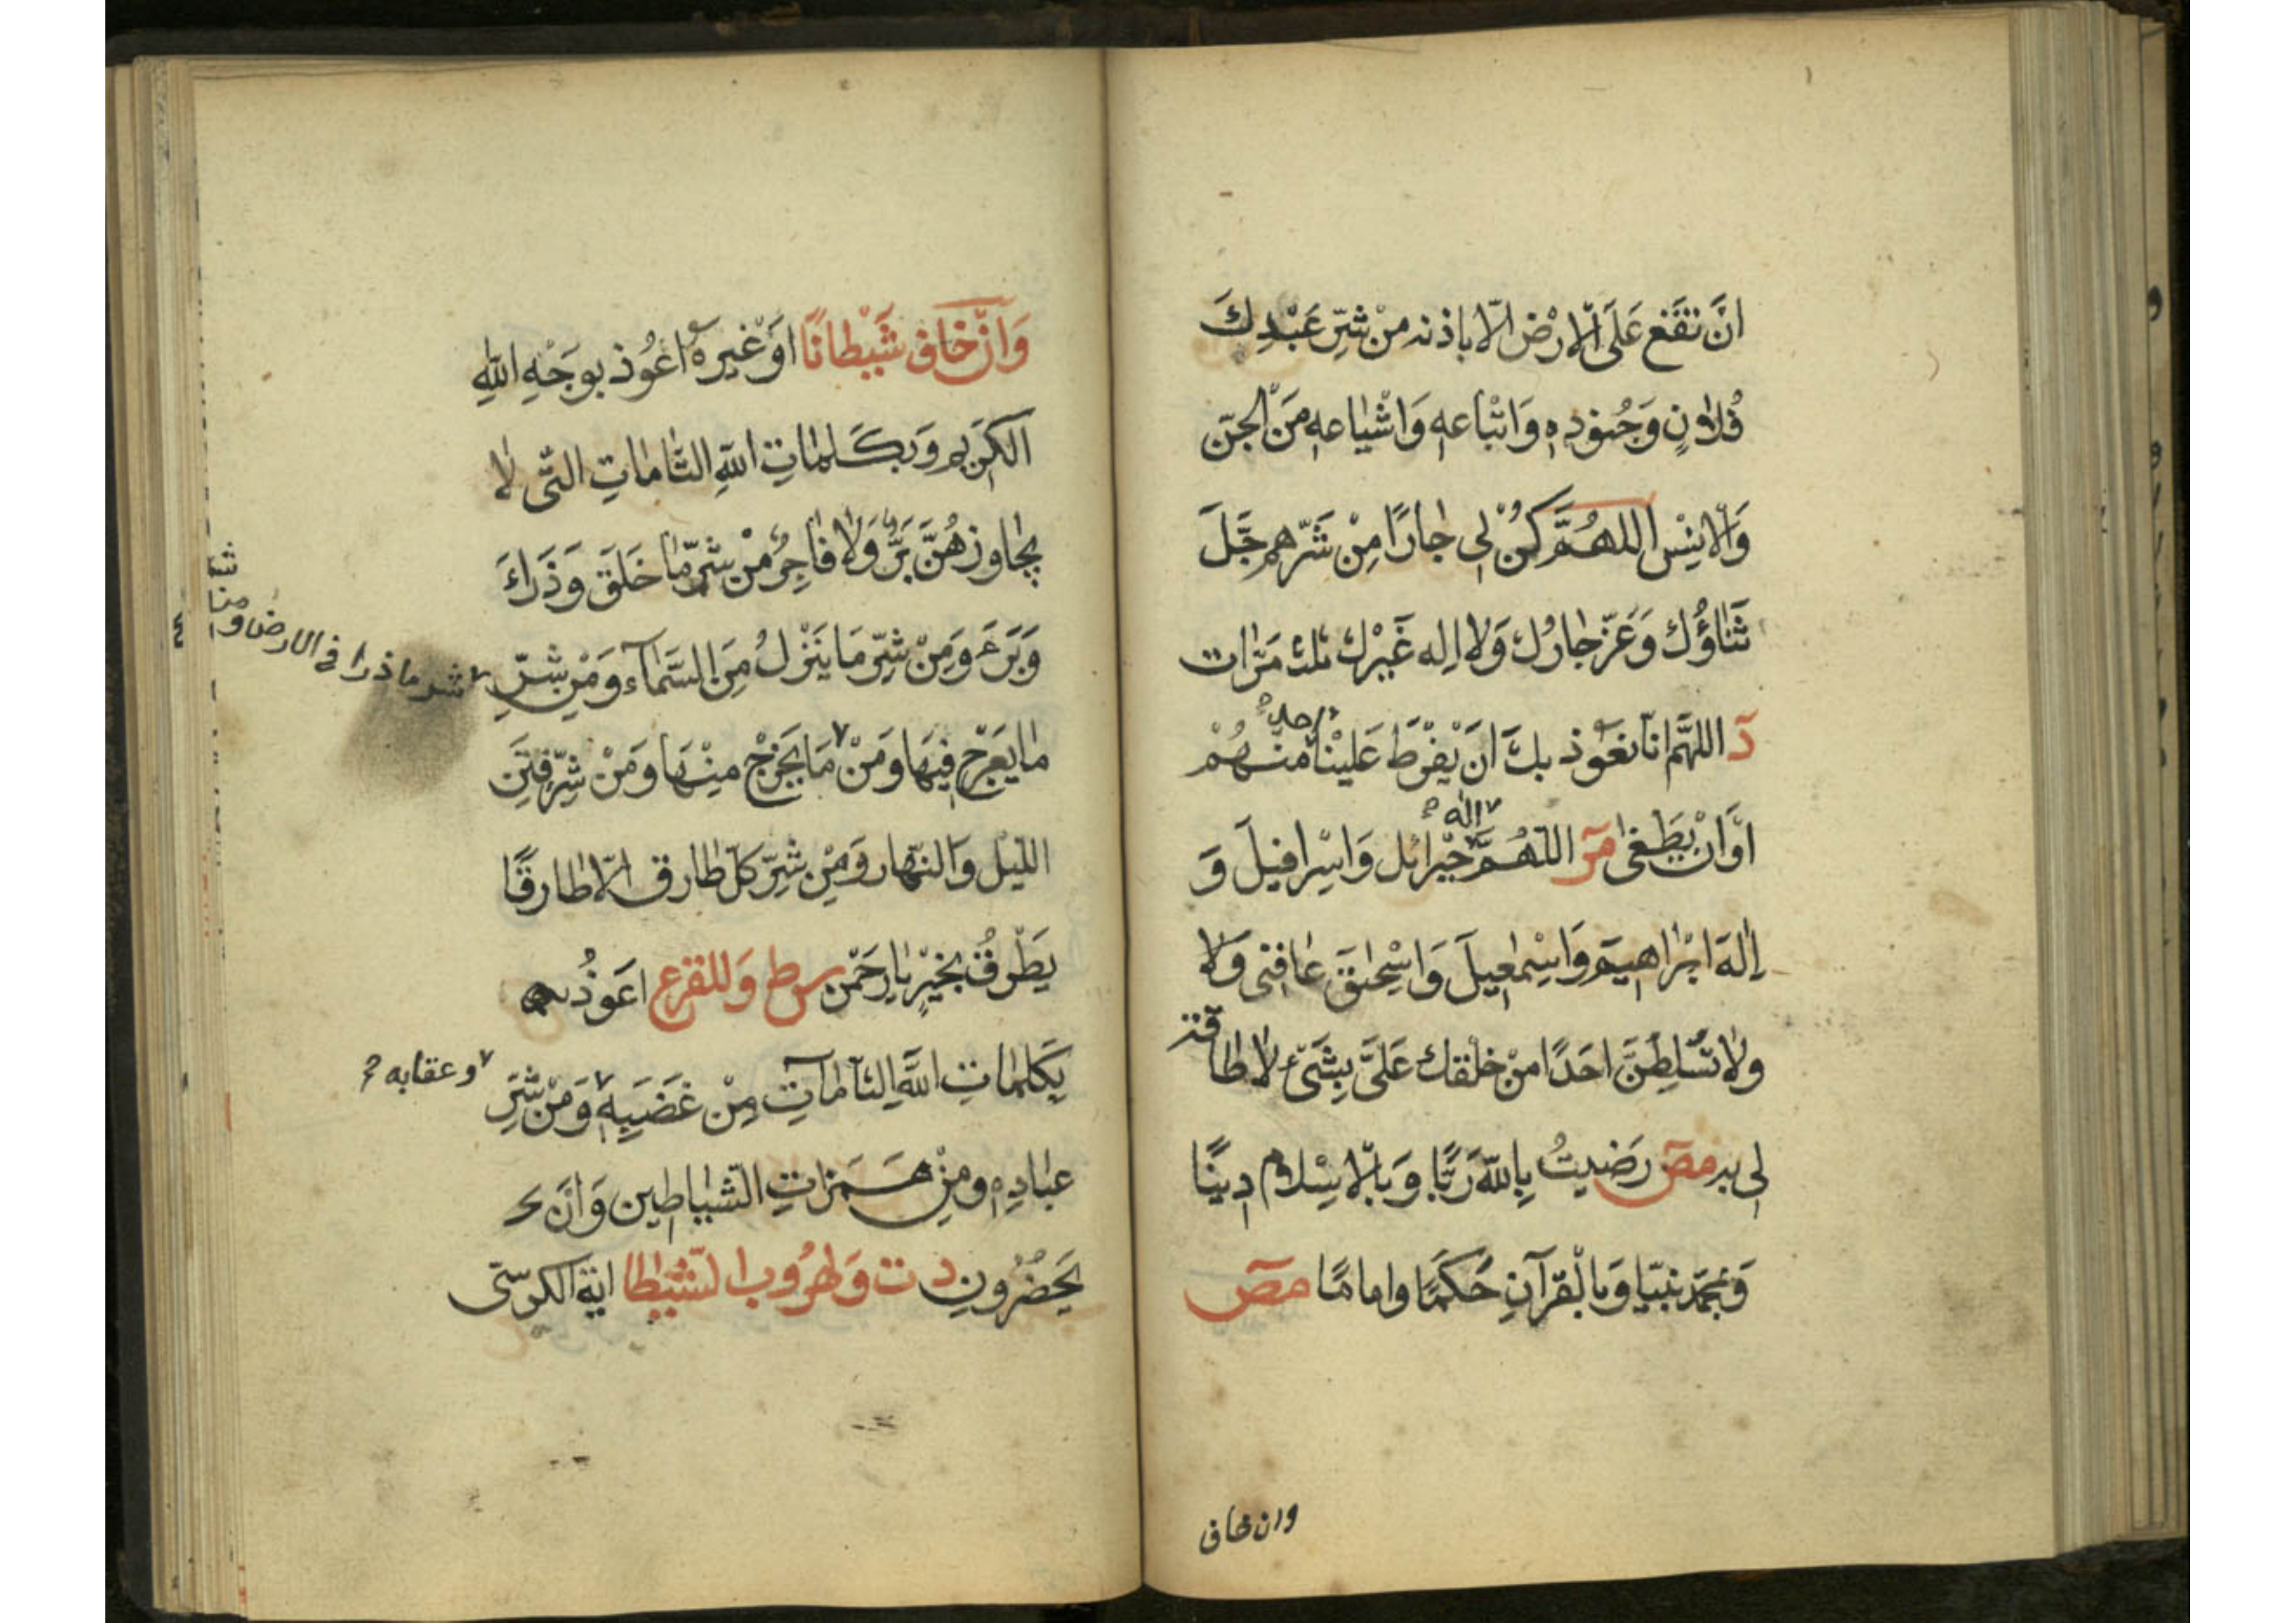 اَنْ تَقَعَ عَلَى الْاَرْضِ اِلَّا بِاذنه مِنْ شَرِّ عَبْدِكَ
فُلَانٍ وَجُنودِهِ وَاَتْبَاعِهِ وَاَشْيَاعِهِ مِنَ الْجِنّ
وَالْاِنْسِ اللهُمَّ كُنْ لِي جَارًا مِنْ شَرِّهِمْ جَلَّ
ثَنَاؤُكَ وَعَزَّ جَارُكَ وَلَا اِلهَ غَيْرُكَ ثلث مَرَّات
دَ اللهُمَّ اِنَّا نَعُوذ بِكَ اَنْ يَفْرُطَ عَلَيْنَا مِنْهُمْ
احد
اَوْ اَنْ يَطْغى مَر اللهُمَّ جِبْرَائِل وَاِسْرافِيلَ وَ
اله
اِلهَ اِبْرَاهِيمَ وَاِسْمعِيلَ وَاِسْحقَ عَافِنِي وَلَا
ولَا تُسَلِّطَنَّ اَحَدًا مِنْ خَلْقِكَ عَلَيَّ بِشَيْءٍ لَا طَاقة
لِى به مص رَضِيتُ بِاللهِ رَبًّا وَبِالْاِسْلَامِ دِينًا
وَبِمُحَمَّدٍ نَبِيًّا وَبِالْقُرْآنِ حَكَمًا وامامًا مص
وان خاف
وَاِنْ خَافَ شَيْطَانًا اَوْ غَيْرهُ اَعُوذ بِوَجْهِ اللهِ
الْكَرِيمِ وَبِكَلِمَاتِ اللهِ التَّامَاتِ الَّتِي لَا
يُجَاوِزهُنَّ بَرٌّ وَلَا فَاجِرٌ مِنْ شَرِّ مَا خَلَقَ وَذَرَاَ
وَبَرَءَ وَمِنْ شَرِّ مَا يَنْزِلُ مِنَ السَّمَآءِ وَمِنْ شَرِّ
شر ما ذرا في الارض و
مَا يَعْرُجُ فِيهَا وَمِنْ مَا يَخْرُجُ مِنْهَا وَمِنْ شَرِّ فِتَنِ
اللَّيْلِ وَالنَّهَارِ وَمِنْ شَرِّ كُلّ طَارِقٍ اِلَّا طَارِقًا
يَطْرُقُ بِخَيْرٍ يَارَحْمن س ط وَلِلفَزَعِ اَعُوذُ
بِكَلِمَاتِ اللهِ التَّامَاتِ مِنْ غَضَبِهِ وَمِنْ شَرِّ
وعقابه
عِبَادِهِ وَمِنْ هَمَزَاتِ الشَّيَاطِين وَاَنْ
يَحْضُرُونِ د ت وَلِهُرُوب الشَّيْطَا اية الكرسى